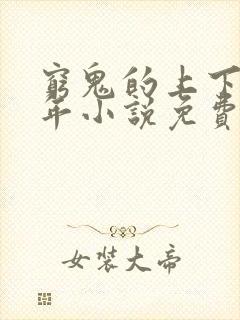 窮鬼的上下
年小說免費
女裝大帝